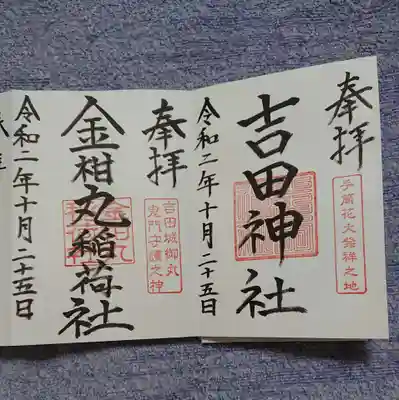 奉拝
手筒花火發祥之地
吉田神社
令和二年十月二十五日
奉拝
吉田城御丸
鬼門守護之神
金柑丸稲荷社
令和二年十月二十五日